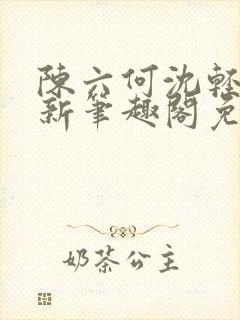 陳六何沈輕
新筆趣閣免
奶茶公主